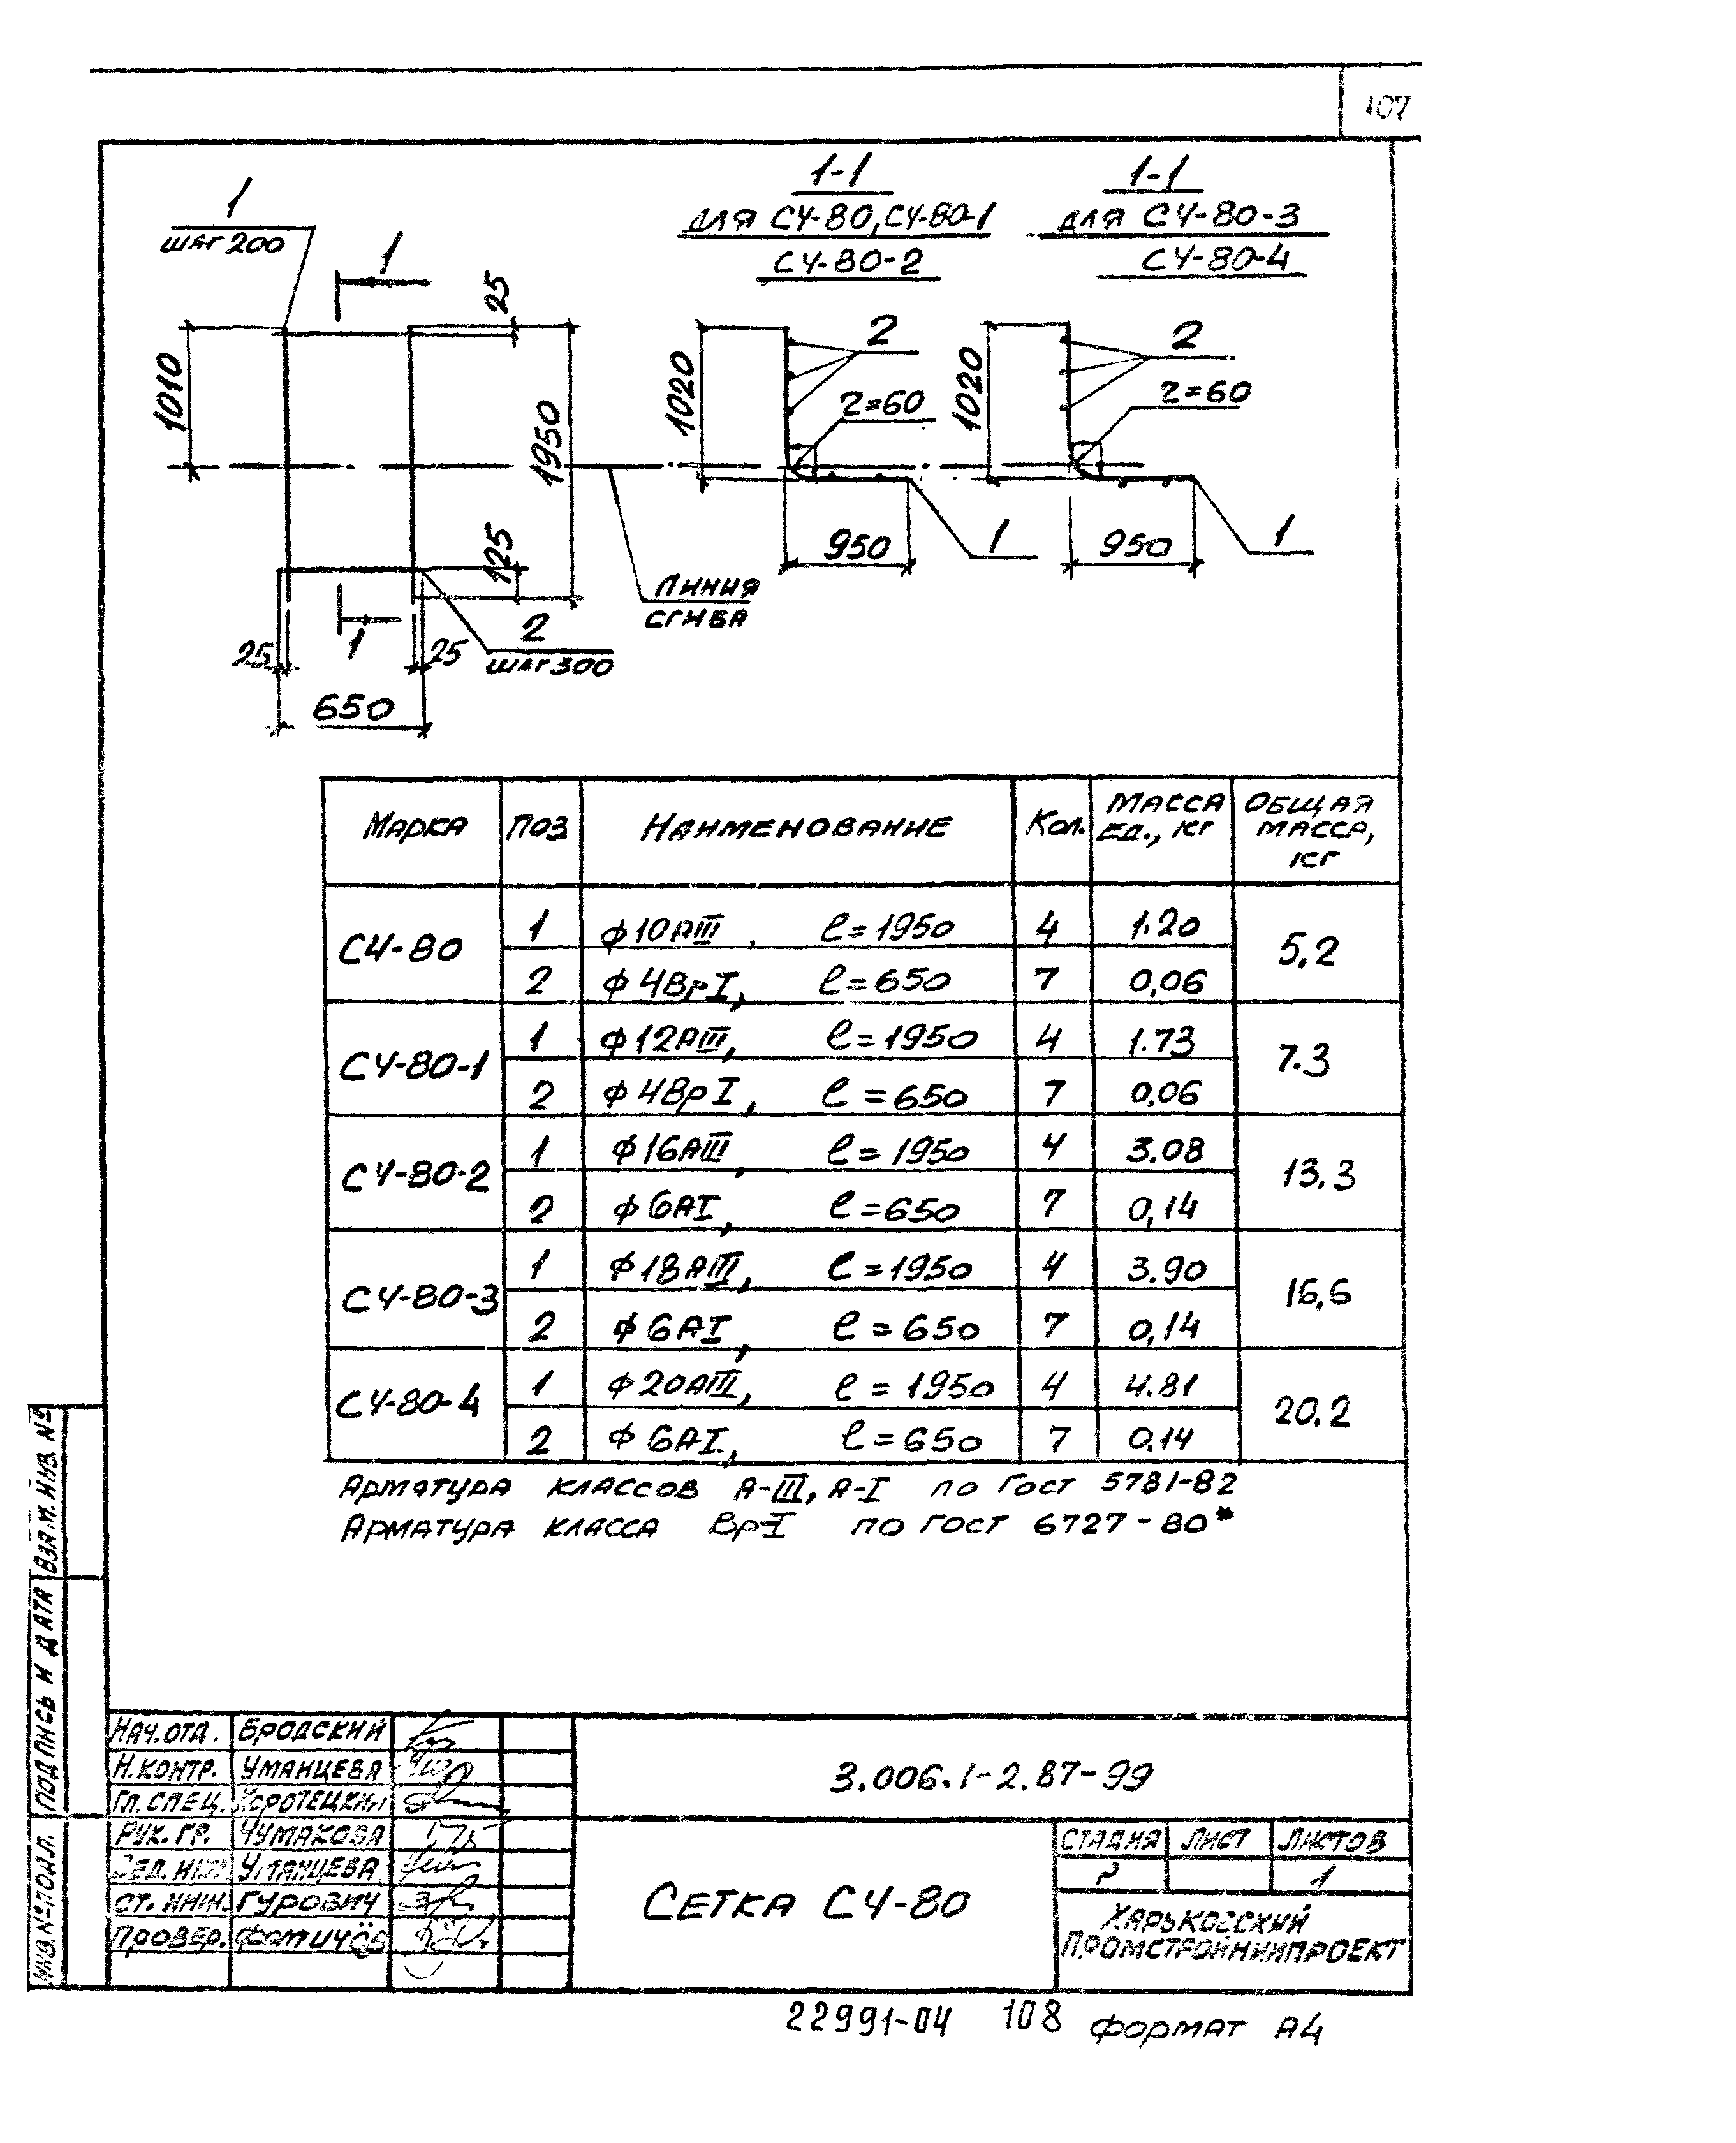 107
1
шаг 200
1
1010
25
1950
125
1
25
25
650
2
шаг 300
линия
сгиба
1-1
для СЧ-80, СЧ-80-1
СЧ-80-2
1020
2
r=60
950
1
1-1
для СЧ-80-3
СЧ-80-4
1020
2
r=60
950
1
Марка Поз Наименование Кол. Масса ед., кг Общая масса, кг
СЧ-80 1 ф10АIII, ℓ=1950 4 1.20 5,2
2 ф4ВрI, ℓ=650 7 0,06
СЧ-80-1 1 ф12АIII, ℓ=1950 4 1.73 7.3
2 ф4ВрI, ℓ=650 7 0.06
СЧ-80-2 1 ф16АIII, ℓ=1950 4 3.08 13.3
2 ф6АI, ℓ=650 7 0,14
СЧ-80-3 1 ф18АIII, ℓ=1950 4 3.90 16,6
2 ф6АI, ℓ=650 7 0,14
СЧ-80-4 1 ф20АIII, ℓ=1950 4 4.81 20.2
2 ф6АI, ℓ=650 7 0.14
Арматура классов А-III, А-I по ГОСТ 5781-82
Арматура класса Вр-I по ГОСТ 6727-80*
Взам. инв. №
Подпись и дата
Инв. № подл.
Нач. отд. Бродский
Н. контр. Уманцева
Гл. спец. Коротецкий
Рук. гр. Чумакова
Вед. инж. Уманцева
Ст. инж. Гурович
Провер. Фомичёв
3.006.1-2.87-99
Сетка СЧ-80
Стадия Лист Листов
Р 1
Харьковский
Промстройниипроект
22991-04 108 Формат А4